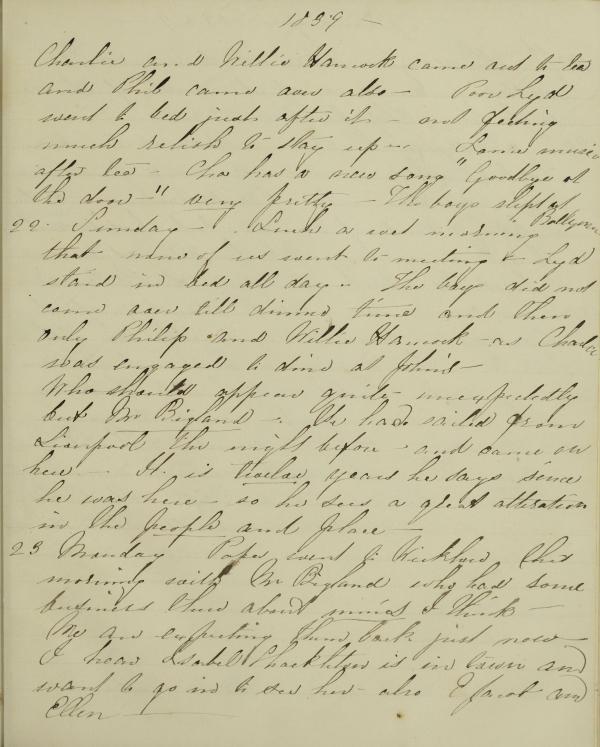 1859 —
Charlie and Willie Hancock came out to tea
and Phil came over also — Poor Lyd
went to bed just after it — not feeling
much relish to stay up — Some music
after tea — Cha has a new song "Goodbye at
the door —" very pretty — The boys slept at
Ballyman
22. Sunday — Such a wet morning
that none of us went to meeting & Lyd
staid in bed all day — The boys did not
come over till dinner time and then
only Philip and Willie Hancock as Charlie
was engaged to dine at John's —
Who should appear quite unexpectedly
but Mr Bigland — He had sailed from
Liverpool the night before — and came on
here — It is twelve years he says since
he was here — so he sees a great alteration
in the people and place —
23 Monday Papa went to Wicklow this
morning with Mr Bigland who had some
business there about mines I think —
We are expecting them back just now —
I hear Isabel Shackleton is in town and
want to go in to see her — also E Jacob and
Ellen —